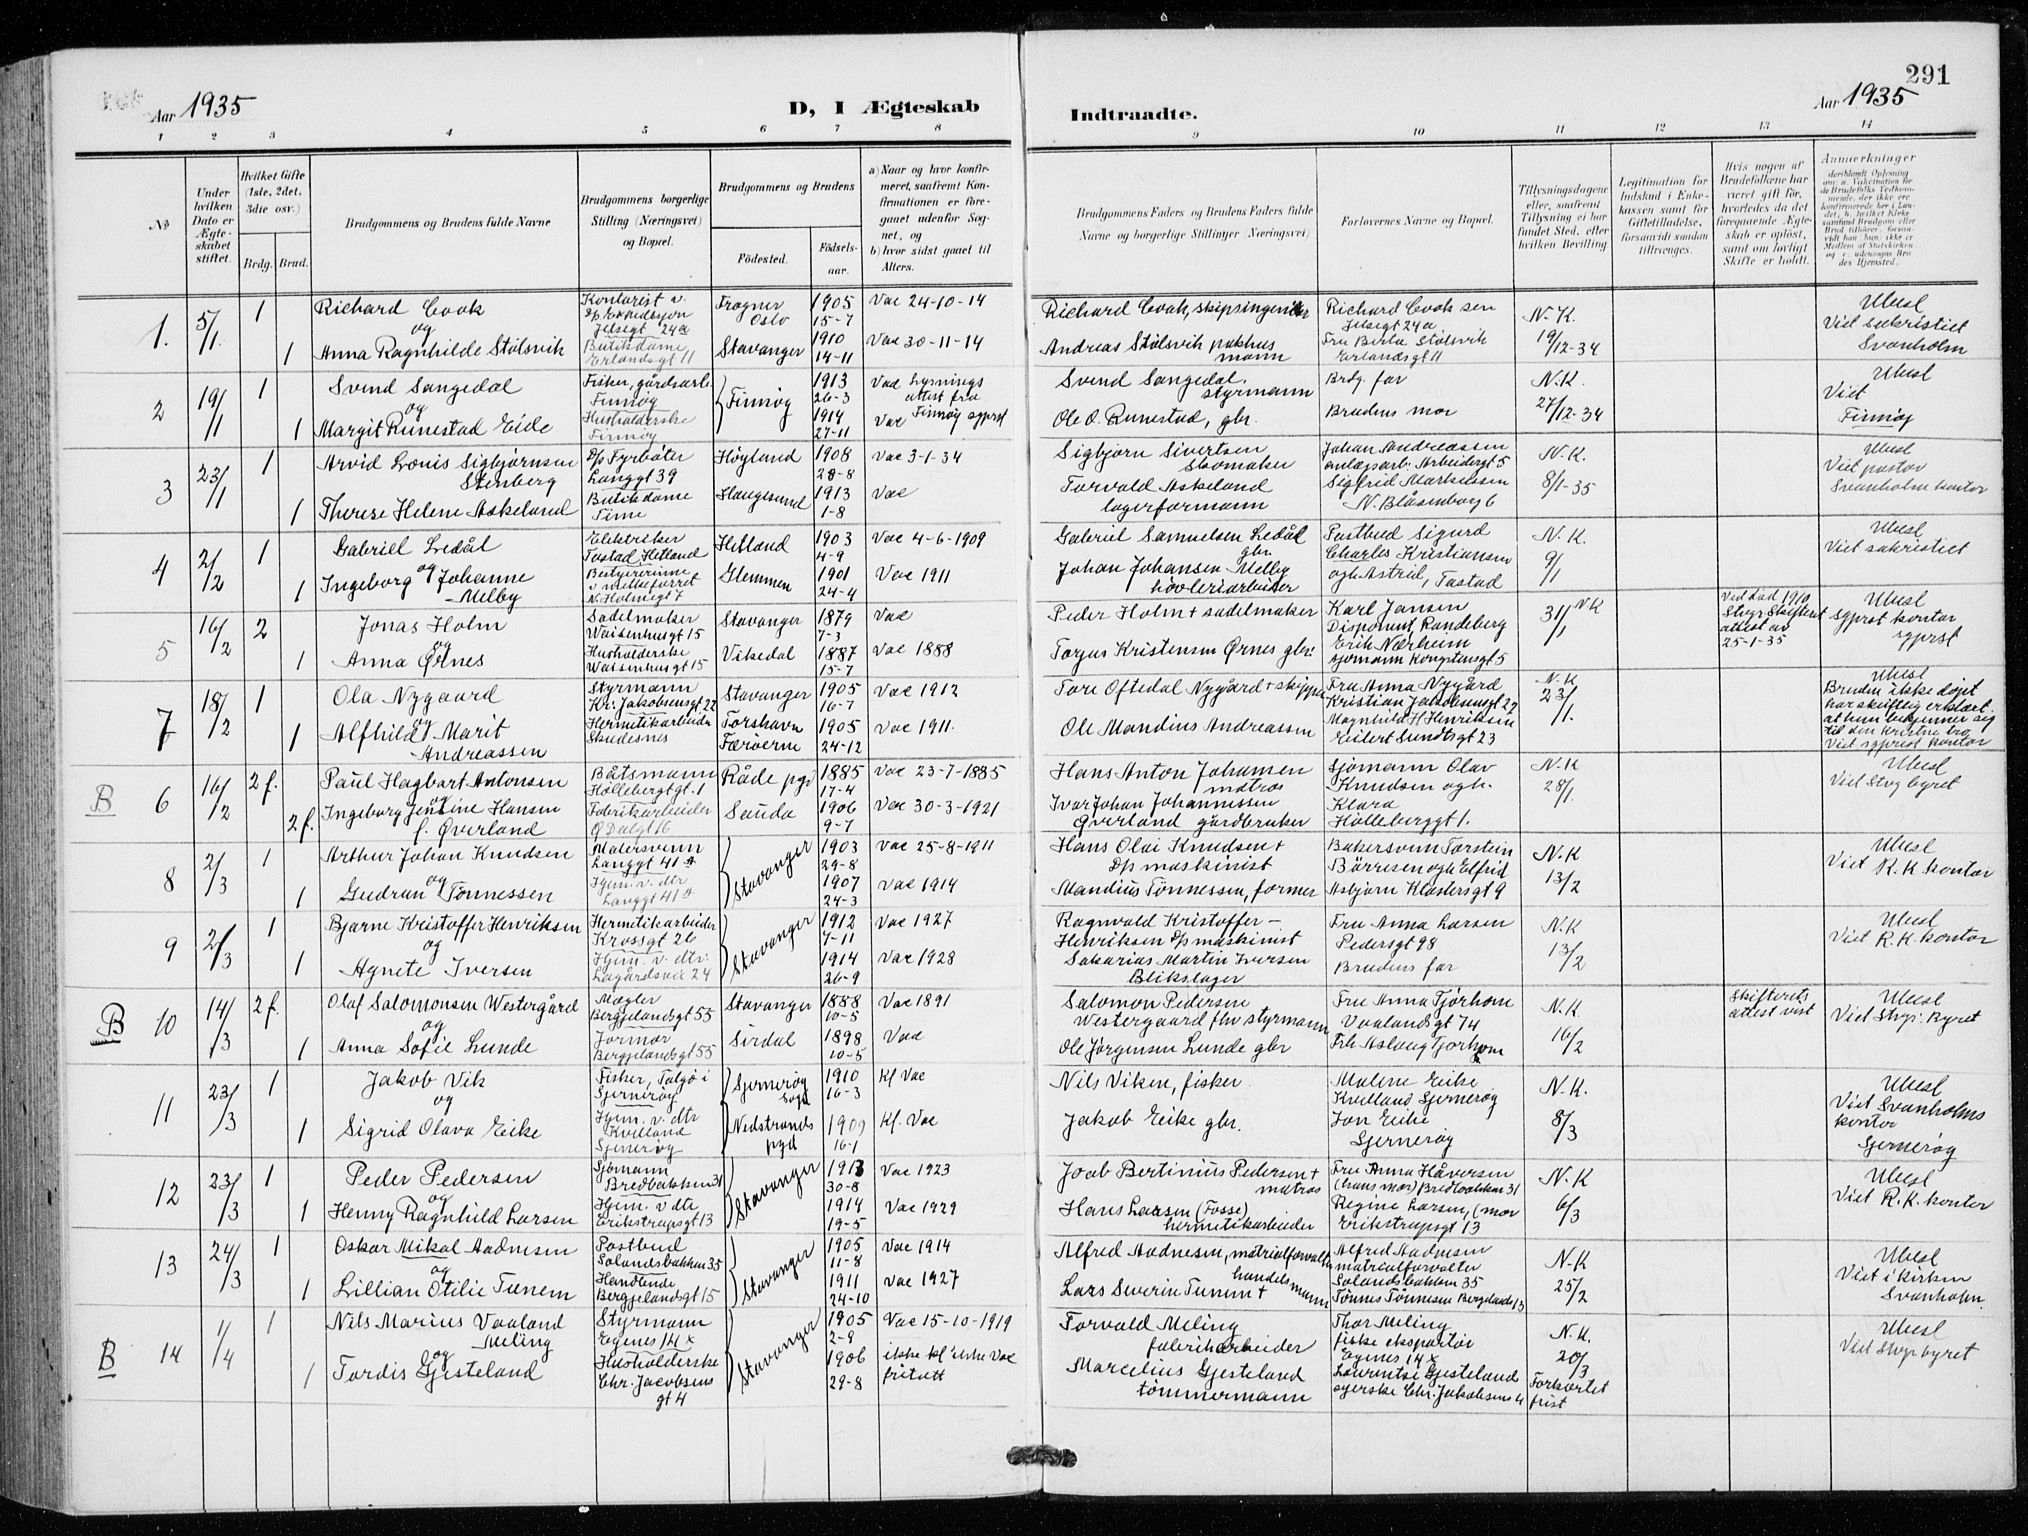 291
Aar 1935
D, I Ægteskab
Indtraadte.
Aar 1935
1 2 3 4 5 6 7 8 9 10 11 12 13 14
No
Under hvilken Dato er Ægteskabet stiftet.
Hvilket Gifte (1ste, 2det, 3die osv.)
Brdg. Brud.
Brudgommens og Brudens fulde Navne
Brudgommens borgerlige Stilling (Næringsvei) og Bopæl.
Brudgommens og Brudens
Fødested.
Fødselsaar.
a) Naar og hvor konfirmeret, saafremt Konfirmationen er foregaaet udenfor Sognet, og
b) hvor sidst gaaet til Alters.
Brudgommens Faders og Brudens Faders fulde Navne og borgerlige Stillinger (Næringsvei)
Forlovernes Navne og Bopæl.
Tillysningsdagene eller, saafremt Tillysning ei har fundet Sted, efter hvilken Bevilling.
Legitimation for Indskud i Enkekassen samt for Giftetilladelse, forsaavidt saadan tiltrænges.
Hvis nogen af Brudefolkene har været gift før, hvorledes da det foregaaende Ægteskab er opløst, samt om lovligt Skifte er holdt.
Anmerkninger
1. 5/1 1 Richard Cook
og
1 Anna Ragnhilde Stølsvik
Kontorist v. D/p Expedisjon Jelsegt 24a
Butikdame Erlandsgt 11
Frogner Oslo 1905 15-7 Vac 24-10-14
Stavanger 1910 14-11 Vac 30-11-14
Richard Cook, skipsingeniør
Andreas Stølsvik pakhusmann
Richard Cook sen Jelsegt 24a
Fru Berta Stølsvik Erlandsgt 11
N.K. 19/12-34
Ubesl Viet sakristiet Svanholm
2 19/1 1 Svend Sangedal
og
1 Margit Runestad Eide
Fisker, gårdsarb. Finnøy
Husholderske Finnøy
Finnøy 1913 26-3 Vac Lysningsattest fra
1914 27-11 Vac Finnøy sgprst
Svend Sangedal. styrmann
Ole O. Runestad, gbr.
Brdg. far
Brudens mor
N.K. 27/12-34
Ubesl Viet Finnøy
3 23/1 1 Arvid Louis Sigbjørnsen Stenberg
1 Therese Helene Askeland
D/p Fyrbøter Langgt 39
Butikdame Time
Høyland 1908 28-8 Vac 3-1-34
Haugesund 1913 1-8 Vac
Sigbjørn Sivertsen skomaker
Torvald Askeland lagerformann
Johan Andreassen anlegsarb. Arbeidergt 5
Sigfrid Markussen N. Blåsenborg 6
N.K. 8/1-35
Ubesl Viet pastor Svanholm kontor
4 2/2 1 Gabriel Ledål
og
1 Ingeborg Johanne Melby
Elektriker Tastad, Hetland
Bestyrerinne v. melkeforret N. Holmegt 7
Hetland 1903 4-9 Vac 4-6-1909
Glemmen 1901 24-4 Vac 1911
Gabriel Samuelsen Ledål gbr.
Johan Johansen Melby høvleriarbeider
Postbud Sigurd Charles Kristiansen og h. Astrid, Tastad
N.K. 9/1
Ubesl Viet sakristiet
5 16/2 2 Jonas Holm
og
1 Anna Ørnes
Sadelmaker Waisenhusgt 15
Husholderske Waisenhusgt 15
Stavanger 1879 7-3 Vac
Vikedal 1887 15-7 Vac 1888
Peder Holm + sadelmaker
Torjus Kristensen Ørnes gbr.
Karl Jansen Disponent, Randeberg
Erik Nærheim sjømann Kongstensgt 5
31/1 NK
Ved død 1910 Stvgr. Skifteret attest av 25-1-35
Ubesl Sgprst kontor sgprst
7 18/2 1 Ola Nygaard
og
1 Alfhild Marit Andreassen
Styrmann Kr. Jakobsensgt 22
Hermetikarbeider Skudesnes
Stavanger 1905 16-7 Vac 1912
Torshavn Færøerne 1905 24-12 Vac 1911.
Tore Oftedal Nygård + skipper
Ole Mandius Andreassen
Fru Anna Nygård Kristian Jakobsensgt 22
Magnhild H Henriksen Eilert Sundtsgt 23
N.K 23/1.
Ubesl Bruden ikke døpt har skriftlig erklært at hun bekjenner sig til den kristne tro Viet sgprest kontor
B 6 16/2 2 f. Paul Hagbart Antonsen
og
2 f. Ingeborg Jentine Hansen f. Øverland
Båtsmann Hollebergtgt. 1
Fabrikarbeider Ø Dalgt 16
Råde pgd 1885 17-4 Vac 23-7-1885
Sauda 1906 9-7 Vac 30-3-1921
Hans Anton Johansen matros
Ivar Johan Johannessen Øverland gårdbruker
Sjømann Olav Knudsen og h. Klara Holleberggt 1.
N.K 28/1.
Ubesl Viet Stvg byret
8 2/3 1 Arthur Johan Knudsen
og
1 Gudrun Tønnessen
Malersvenn Langgt 41 A
Hjem. v. dtr Langgt 41 A
Stavanger 1903 29-8 Vac 25-8-1911
1907 24-3 Vac 1914
Hans Olai Knudsen + D/p maskinist
Mandius Tønnessen, former
Bakersvenn Torstein Børresen og h Elfrid
Asbjørn Klostersgt 9
N.K 13/2
Ubesl Viet R.K. kontor
9 2/3 1 Bjarne Kristoffer Henriksen
og
1 Agnete Iversen
Hermetikarbeider Krossgt 26
Hjem. v. dtr. Lagårdsvei 24
Stavanger 1912 7-11 Vac 1927
1914 26-9 Vac 1928
Ragnvald Kristoffer - Henriksen D/p maskinist
Sakarias Martin Iversen Blikslager
Fru Anna Larsen Pedersgt 98
Brudens far
N.K 13/2
Ubesl Viet R.K. kontor
B 10 14/3 2 f. Olaf Salomonsen Westergård
og
1 Anna Sofie Lunde
Mægler Bergjelandsgt 55
Jormor Bergjelandsgt 55
Stavanger 1888 10-5 Vac 1891
Sirdal 1898 10-5 Vac
Salomon Pedersen Westergaard fhv styrmann
Ole Jørgensen Lunde gbr
Fru Anna Tjørhom Vaalandsgt 74
Frk Aslaug Tjørhom
N.K. 16/2
Skifterets attest vist
Ubesl Viet Stvgr. Byret
11 23/3 1 Jakob Vik
og
1 Sigrid Olava Eike
Fisker, Talgø i Sjernerøy
Hjem. v. dtr Kvitland Sjernerøy
Sjernerøy sogn 1910 16-3 Kf Vac
Nedstrands pgd 1909 16-1 Kf. Vac
Nils Viken, fisker.
Jakob Eike gbr.
Malene Eike Kvitland Sjernerøy
Jon Eike Sjernerøy
N.K. 8/3
Ubesl Viet Svanholms kontor Sjernerøy
12 23/3 1 Peder Pedersen
og
1 Henny Ragnhild Larsen
Sjømann Bredbakken 31
Hjem. v dtr Erikstrupsgt 13
Stavanger 1913 30-8 Vac 1923
1914 19-5 Vac 1929
Joab Bertinius Pedersen + matros
Hans Larsen (Fosse) hermetikarbeider
Fru Anna Håversen (hans mor) Bredbakken 31
Regine Larsen, (mor Erikstrupsgt 13
N.K 6/3
Ubesl Viet R.K. kontor
13 24/3 1 Oskar Mikal Aadnesen
og
1 Lillian Otilie Tunem
Postbud Solandsbakken 35
Handlende Bergjelandsgt 15
Stavanger 1905 11-8 Vac 1914
1911 24-10 Vac 1927
Alfred Aadnesen, matrialforvalter
Lars Severin Tunem + handelsmann
Alfred Aadnesen matrialforvalter Solandsbakken 35
Tønnes Tønnesen Bergelandsg 13
N.K 25/2
Ubesl Viet i kirken Svanholm.
B 14 1/4 1 Nils Marius Vaaland Meling
og
1 Tordis Gjesteland
Styrmann Egenes 14 x
Husholderske Chr. Jacobsens gt 4
Stavanger 1905 2-9 Vac 15-10-1919
1906 29-8 ikke kf ikke Vac fritatt
Torvald Meling fabrikarbeider
Marcelius Gjesteland tømmermann
Thor Meling fiske eksportør Egenes 14 x
Lovrentse Gjesteland syerske Chr. Jakobsens 4
N.K. 20/3 Forkortet frist
Ubesl Viet Stvg byret